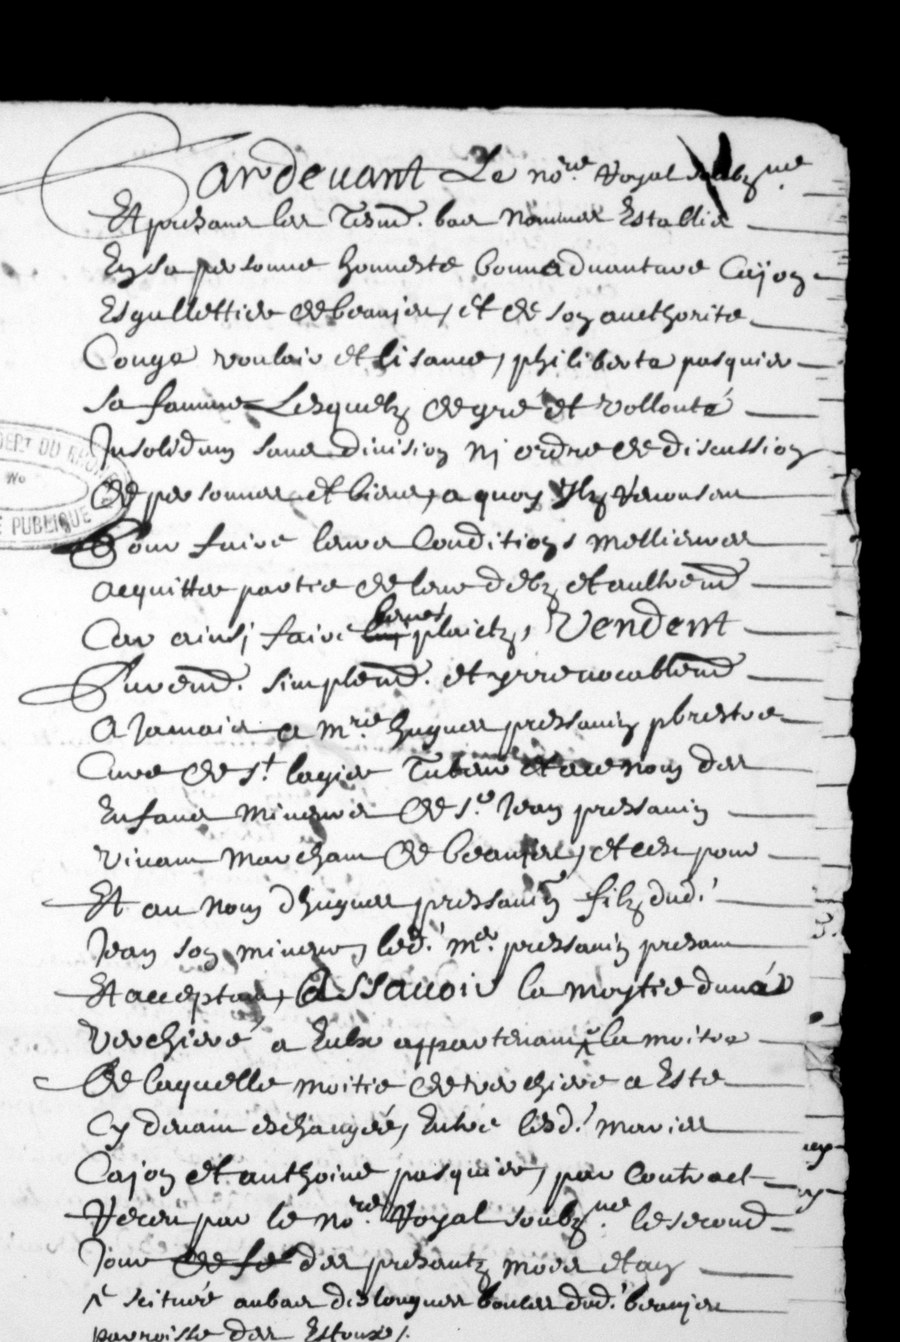 Pardevant Le no.re Royal soubz.né
Et presans les Tesm. bas nommés Establis
En sa personne honneste bonnadvanture Cajon
Esguillettier de beaujeu, et de son aucthorite
Conge vouloir et lisance, philiberte pasquier
sa famme Lesquelz de gre et vollonté
Insolidum sans division nj ordre de discussion
de personnes et biens, a quoy Ilz renonsent
Pour faire leurs Conditions mellieures
acquitter partie de leur debz et aultrem.
Car ainsj faire leurs plaictz, Vendent
Purem. simplem. et yrrevocablem.
A Jamais a m.re hugues pressavin pbrestre
Cure de s.t lagier Tuteur et au nom des
Enfans mineurs de s.r Jean pressavin
vivant marchant de beaujeu, et ce pour
Et au nom dhugues pressavin filz dud.
Jean son mineur, led. m.e pressavin presant
Et acceptant, Assavoir la moytie duné
verchiere a Eulx appartenant ^ la moitie
De laquelle moitie de verchiere a Este
Cy devant eschangée, Entre lesd. mariés
Cajon et anthoine pasquier, par contract
Receu par le no.re Royal soubz.né le second
Jour des presentz mois et an
^ scituée au bas des longues boules dud. beaujeu
parroisse des Estoux.
DEPT DU RHONE
PUBLIQUE